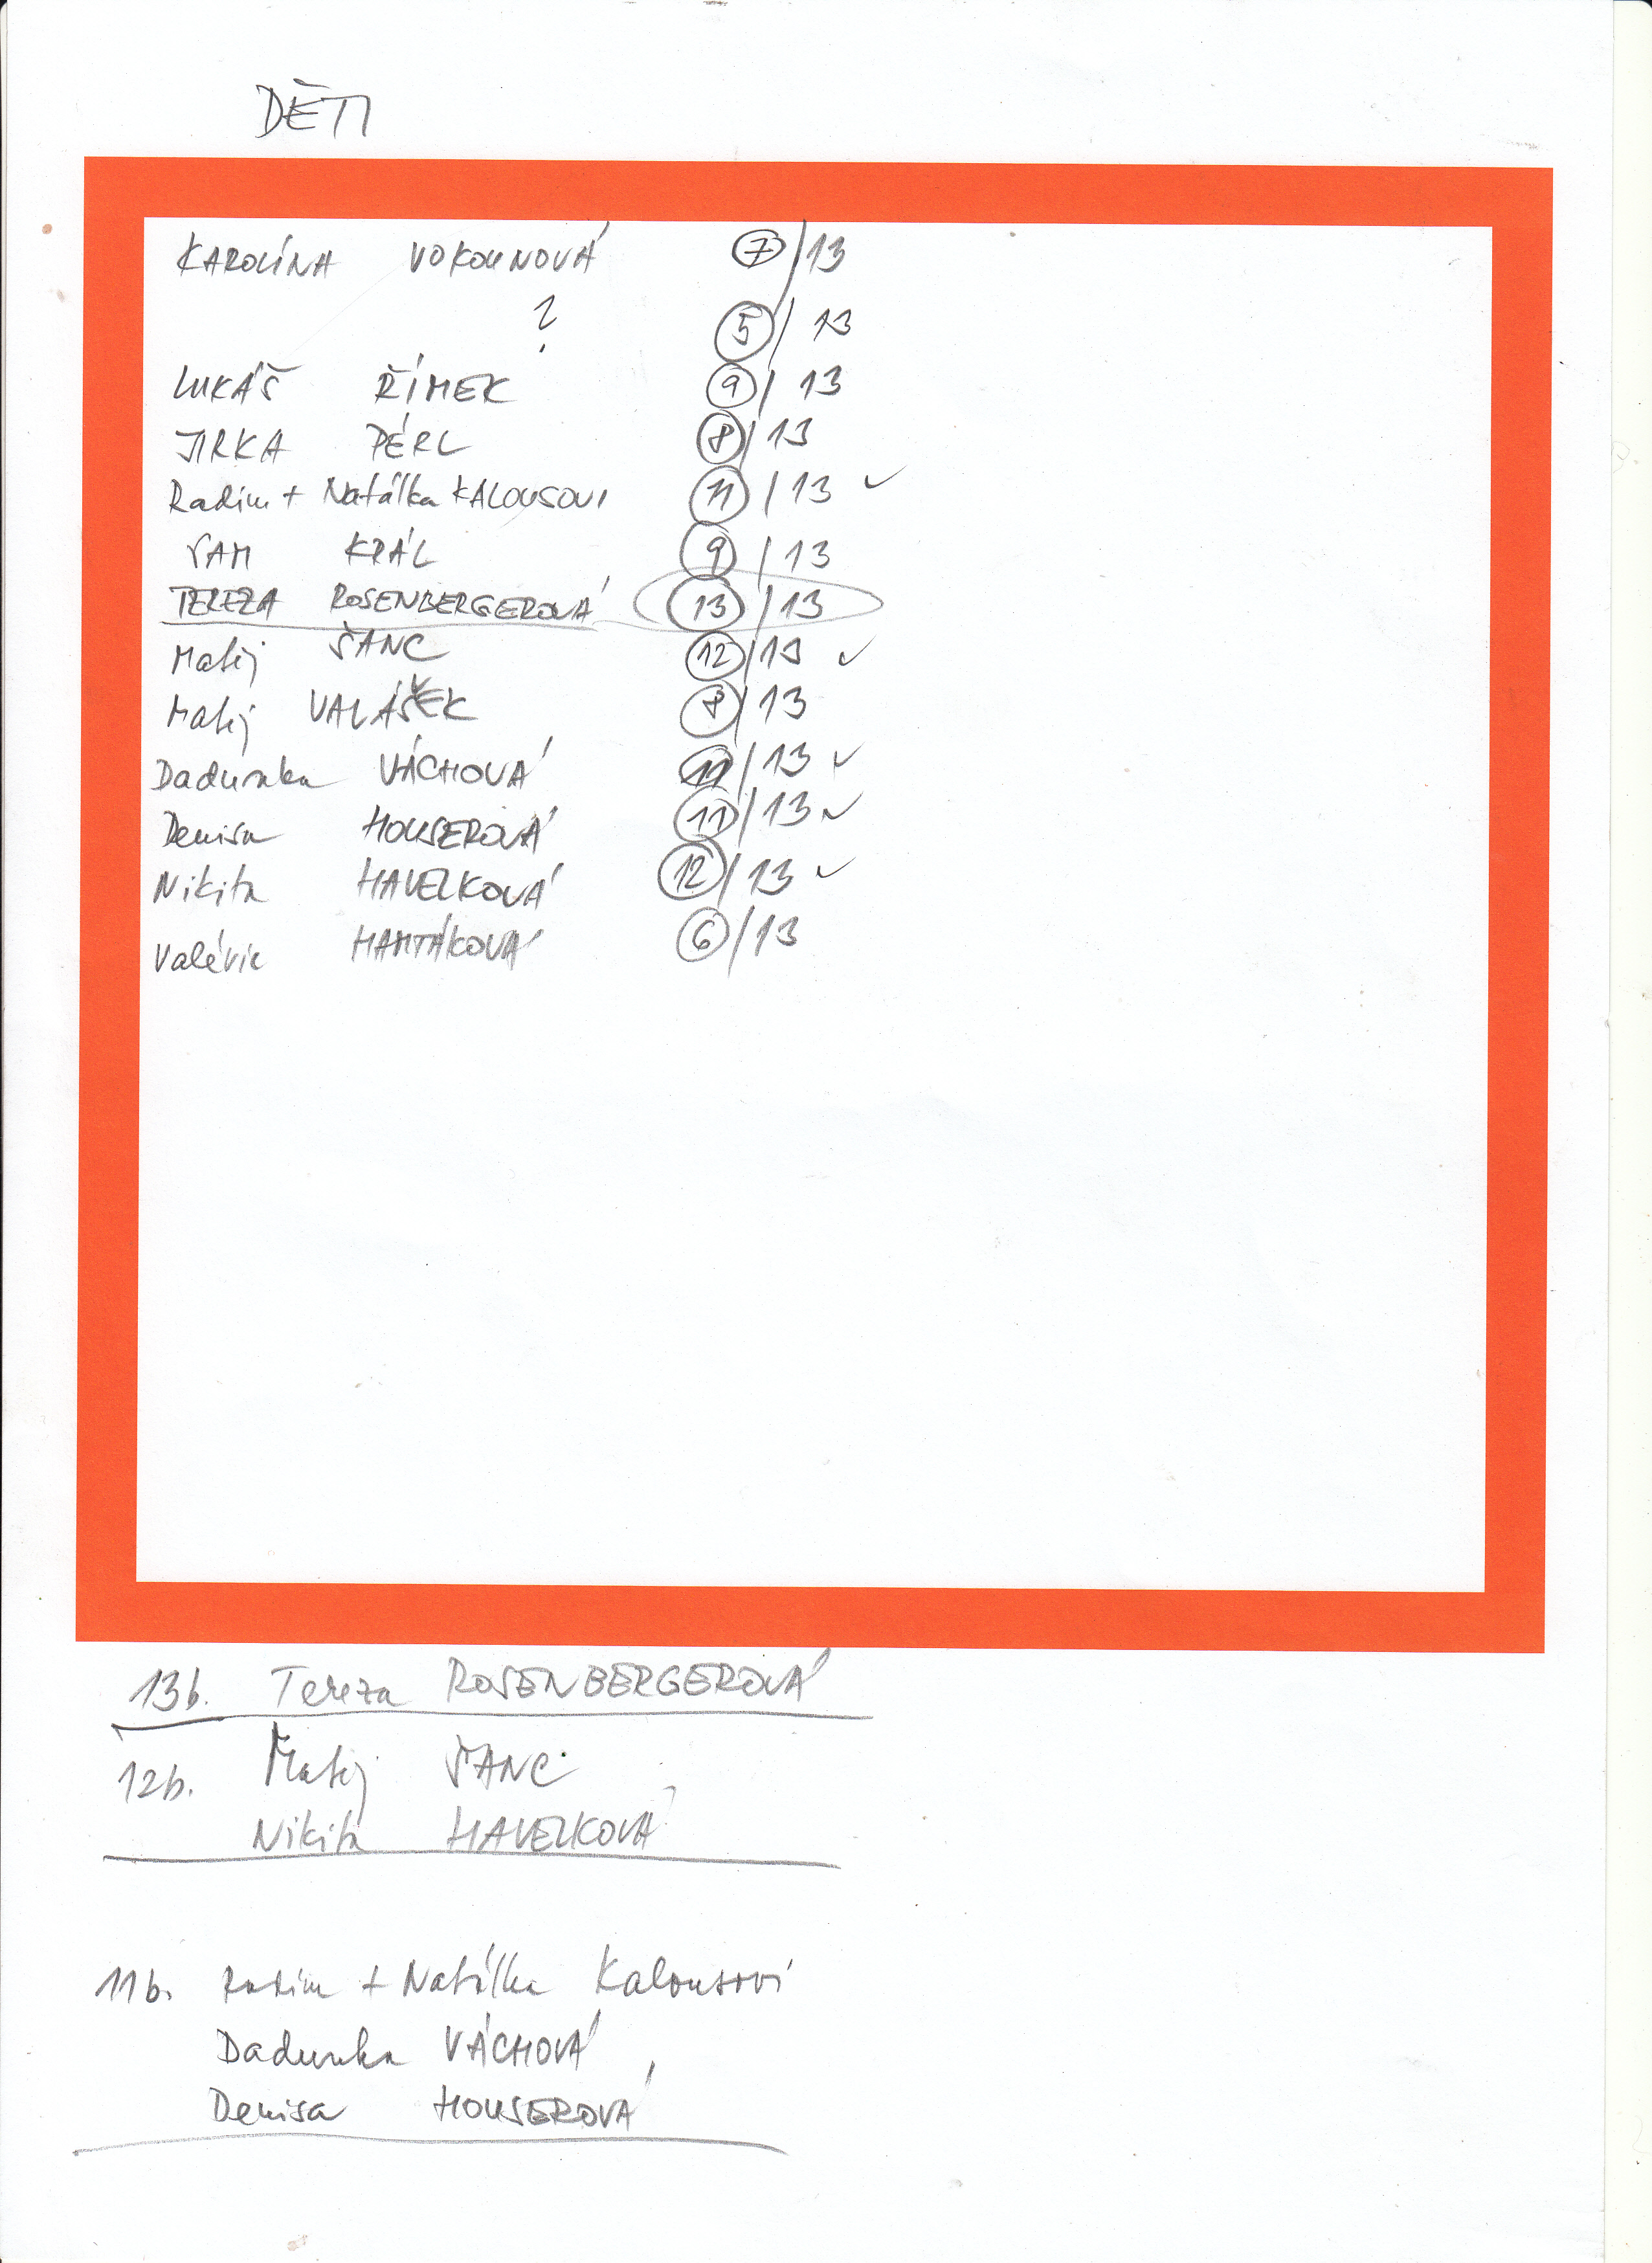 DĚTI
KAROLÍNA VOKOUNOVÁ 7/13
? 5/13
LUKÁŠ ŘÍMEK 9/13
JIRKA PÉRL 8/13
Radim + Natálka KALOUSOVI 11/13 ✓
SAM KRÁL 9/13
TEREZA ROSENBERGEROVÁ 13/13
Matěj ŠANC 12/13 ✓
Matěj VALÁŠEK 8/13
Dadunka VÁCHOVÁ 11/13 ✓
Denisa HOUSEROVÁ 11/13 ✓
Nikita HAVELKOVÁ 12/13 ✓
Valérie 6/13
13b. Tereza ROSENBERGEROVÁ
12b. Matěj ŠANC
Nikita HAVELKOVÁ
11b. Radim + Natálka Kalousovi
Dadunka VÁCHOVÁ
Denisa HOUSEROVÁ